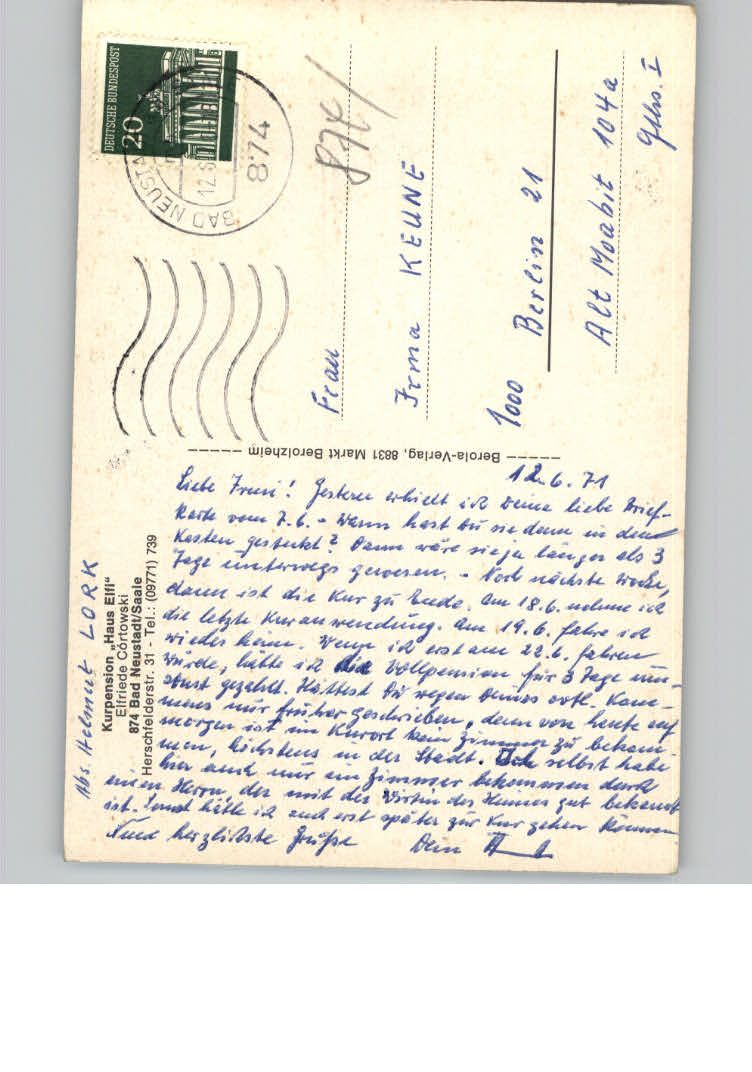 Abs. Helmut LORK
Kurpension „Haus Elfi“
Elfriede Cortowski
874 Bad Neustadt/Saale
Herschfelderstr. 31 - Tel.: (09771) 739
12.6.71
Liebe Irmi! Gestern erhielt ich Deine liebe Brief-
karte vom 7.6. - Wann hast Du sie denn in den
Kasten gesteckt? Dann wäre sie ja länger als 3
Tage unterwegs gewesen. - Noch nächste Woche,
dann ist die Kur zu Ende. Am 18.6. nehme ich
die letzte Kuranwendung. Am 19.6. fahre ich
wieder heim. Wenn ich erst am 22.6. fahren
würde, hätte ich die Vollpension für 3 Tage um-
sonst gezahlt. Hättest Du wegen Deines evtl. Kom-
mens nur früher geschrieben, denn von heute auf
morgen ist im Kurort kein Zimmer zu bekom-
men, höchstens in der Stadt. Ich selbst habe
hier auch nur ein Zimmer bekommen durch
einen Herrn, der mit der Wirtin des Heimes gut bekannt
ist. Sonst hätte ich auch erst später zur Kur gehen können
herzlichste Grüße Dein
Berola-Verlag, 8831 Markt Berolzheim
DEUTSCHE BUNDESPOST
20
BAD NEUSTA
12.6
874
874
Frau
Irma KEUNE
1000 Berlin 21
Alt Moabit 104a
Gths. I